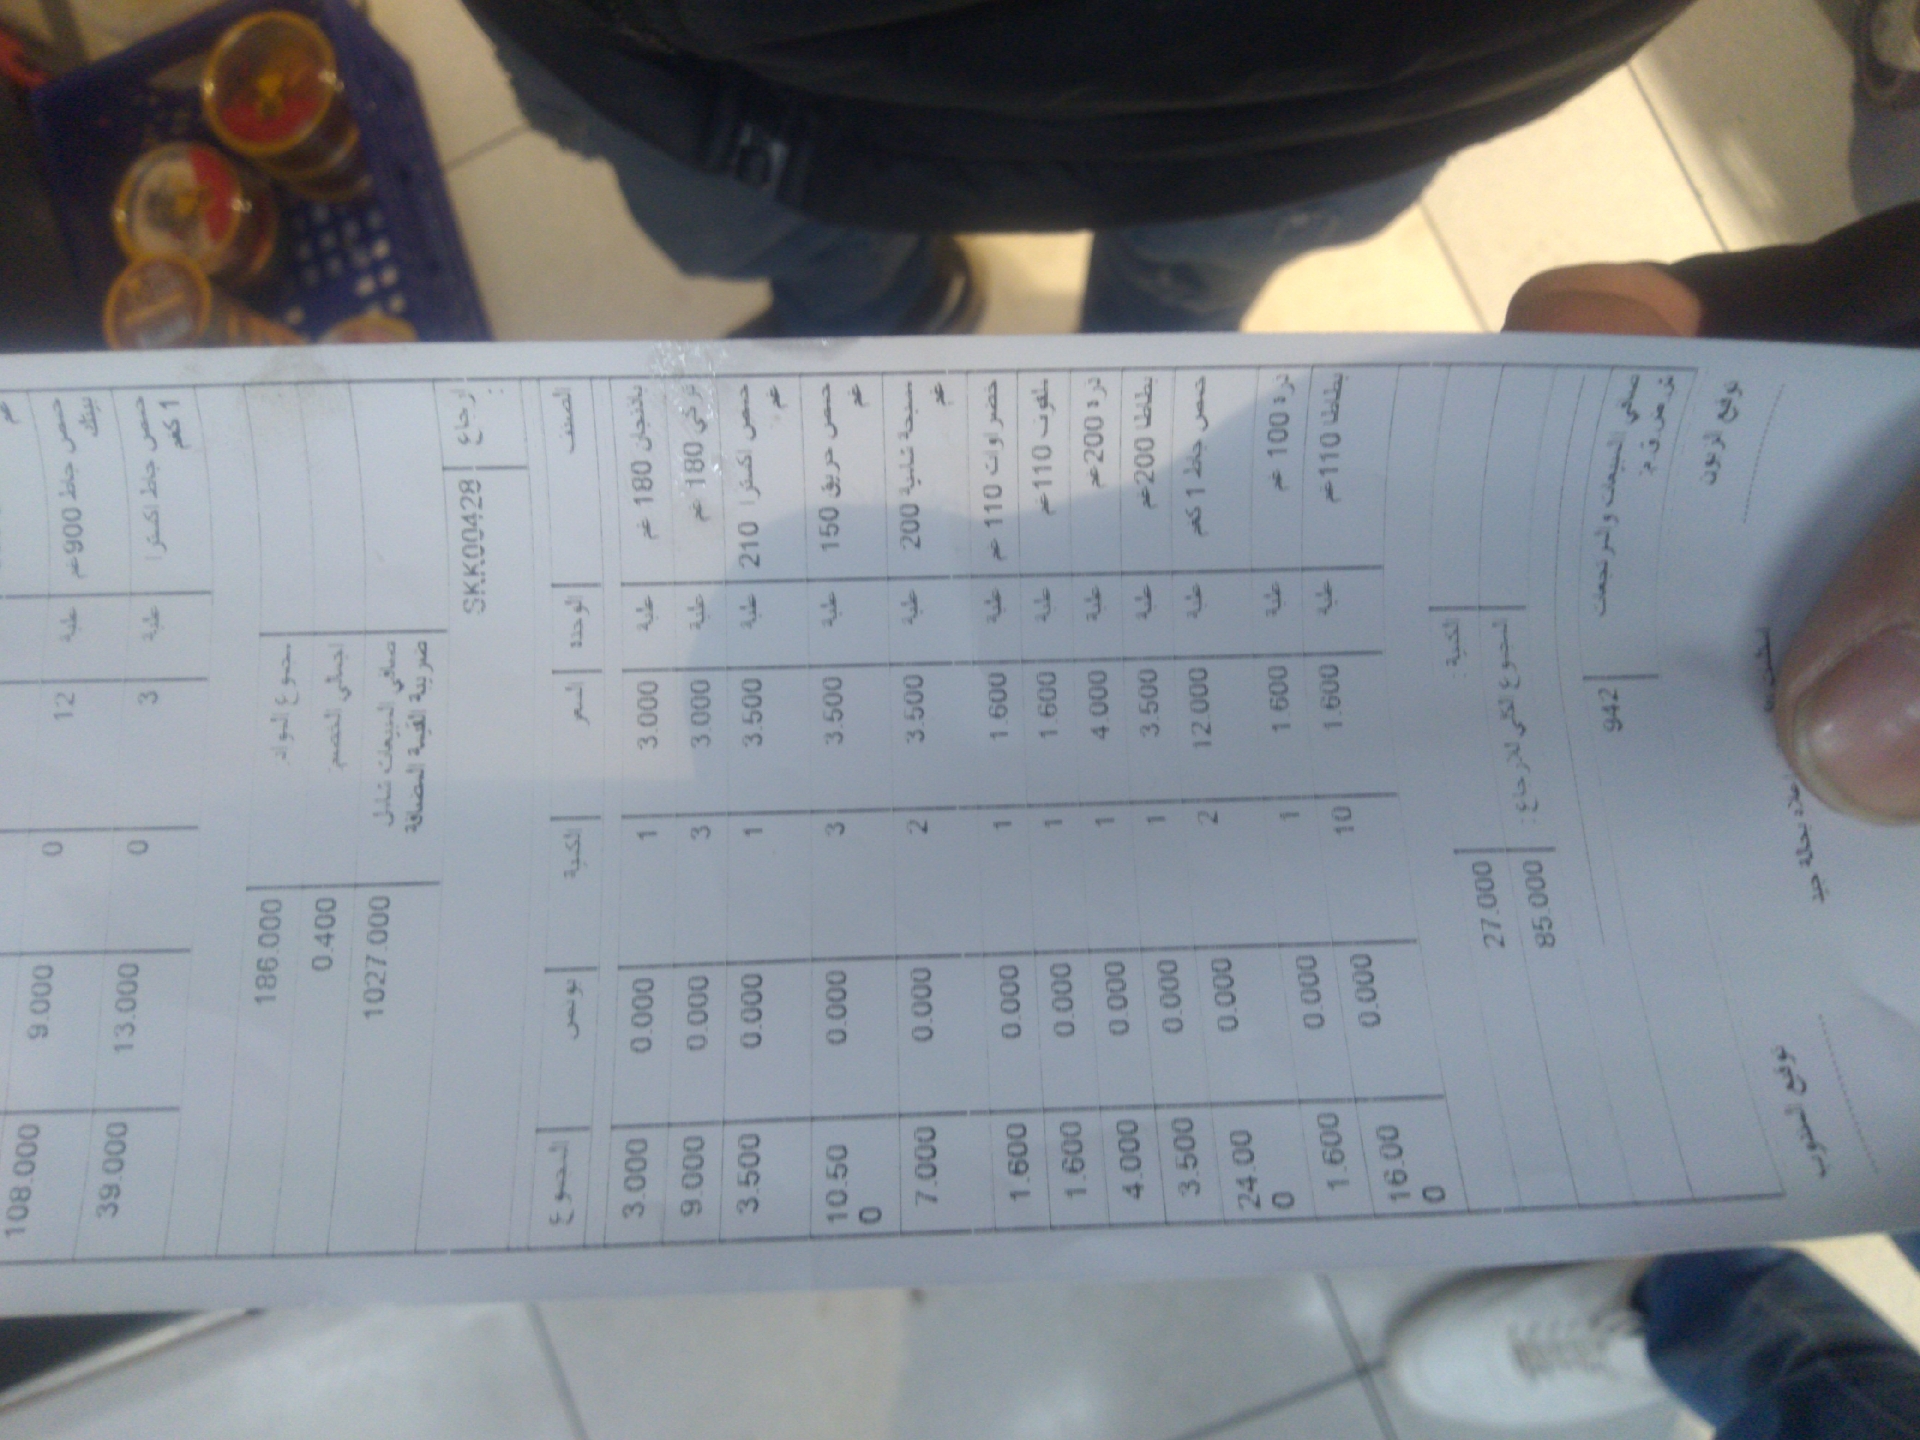 حمص جاط 900غم علبة 12 0 9.000 108.000
حمص جاط اكسترا علبة 3 0 13.000 39.000
1 كغم
مجموع المواد 186.000
اجمالي الخصم: 0.400
صافي المبيعات شامل 1027.000
ضريبة القيمة المضافة
ارجاع SKK00428
:
الصنف الوحدة السعر الكمية بونص المجموع
باذنجان 180 غم علبة 3.000 1 0.000 3.000
تركي 180 غم علبة 3.000 3 0.000 9.000
حمص اكسترا 210 علبة 3.500 1 0.000 3.500
غم
حمص حريق 150 علبة 3.500 3 0.000 10.50
غم 0
متبجة شامية 200 علبة 3.500 2 0.000 7.000
غم
خضراوات 110 غم علبة 1.600 1 0.000 1.600
ملفوف 110غم علبة 1.600 1 0.000 1.600
ذرة 200غم علبة 4.000 1 0.000 4.000
بطاطا 200غم علبة 3.500 1 0.000 3.500
حمص جاط 1 كغم علبة 12.000 2 0.000 24.00
0
ذرة 100 غم علبة 1.600 1 0.000 1.600
بطاطا 110غم علبة 1.600 10 0.000 16.00
0
الكمية: 27.000
المجموع الكلي للارجاع: 85.000
صافي المبيعات والمرتجعات 942
توقيع الزبون توقيع المندوب
بحالة جيد